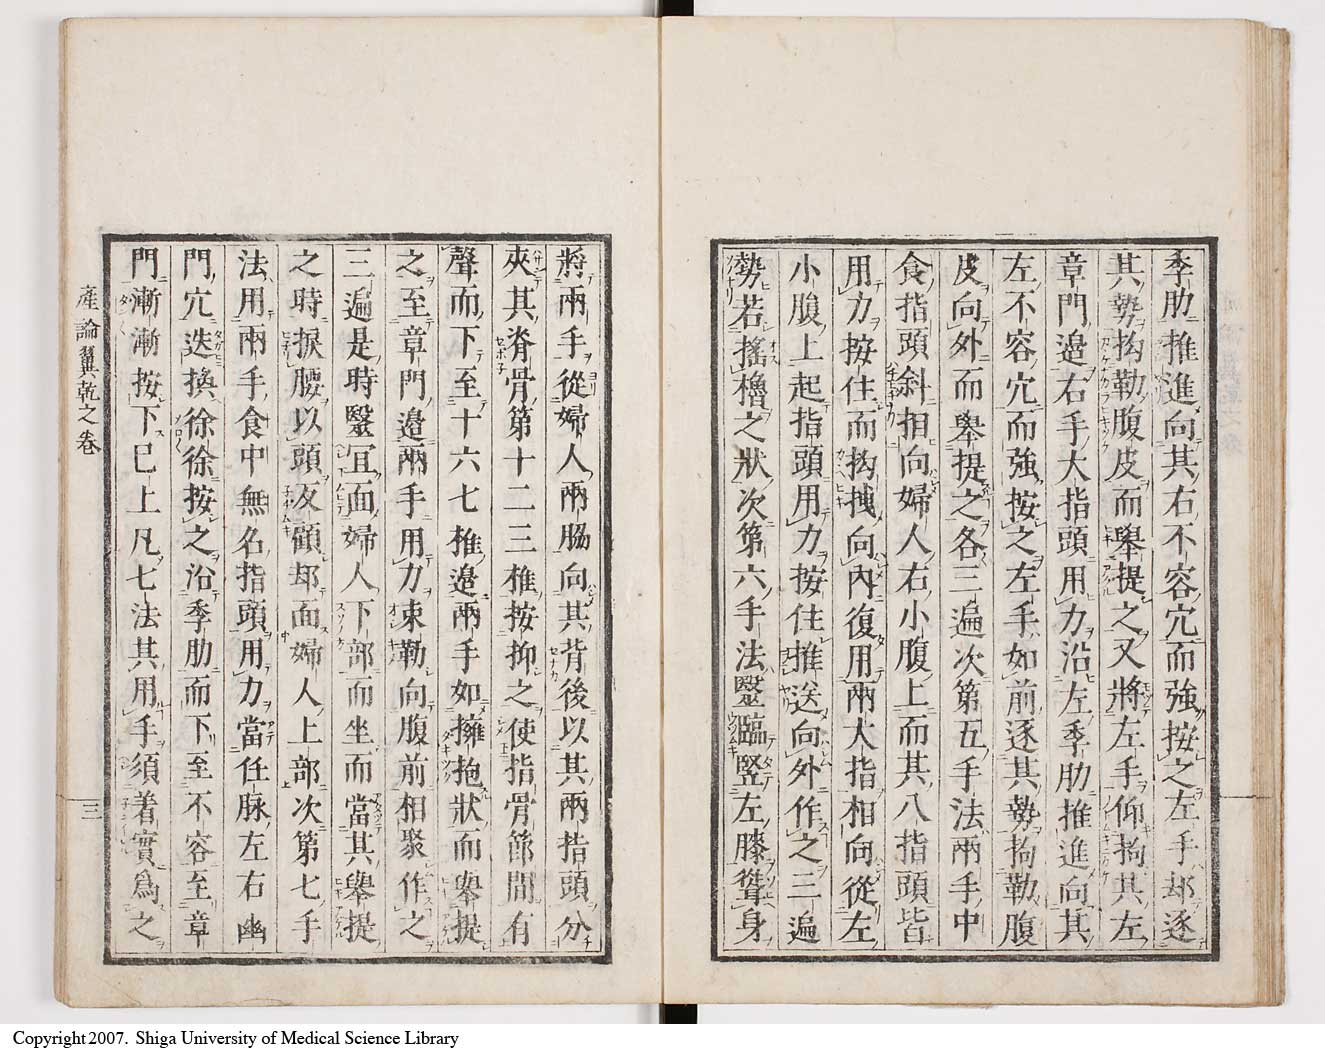 季肋推進向其右不容穴而強按之左手却逐
其勢拘勒腹皮而舉提之又將左手仰拘其左
章門邉右手大指頭用力沿左季肋推進向其
左不容穴而強按之左手如前逐其勢拘勒腹
皮向外而舉提之各三遍次第五手法兩手中
食指頭斜相向婦人右小腹上而其八指頭皆
用力按住而拘拽向內復用兩大指相向從左
小腹上起指頭用力按住推送向外作之三遍
勢若搖櫓之狀次第六手法毉臨竪左膝聳身
將兩手從婦人兩脇向其背後以其兩指頭分
夾其脊骨第十二三椎按抑之使指骨節間有
聲而下至十六七椎邉兩手如擁抱狀而舉提
之至章門邉兩手用力束勒向腹前相聚作之
三遍是時毉宜面婦人下部而坐而當其舉提
之時捩腰以頭反顧却面婦人上部次第七手
法用兩手食中無名指頭用力當任脉左右幽
門穴迭換徐徐按之沿季肋而下至不容至章
門漸漸按下已上凡七法其用手須着實爲之
產論翼乾之卷
三
Copyright 2007. Shiga University of Medical Science Library